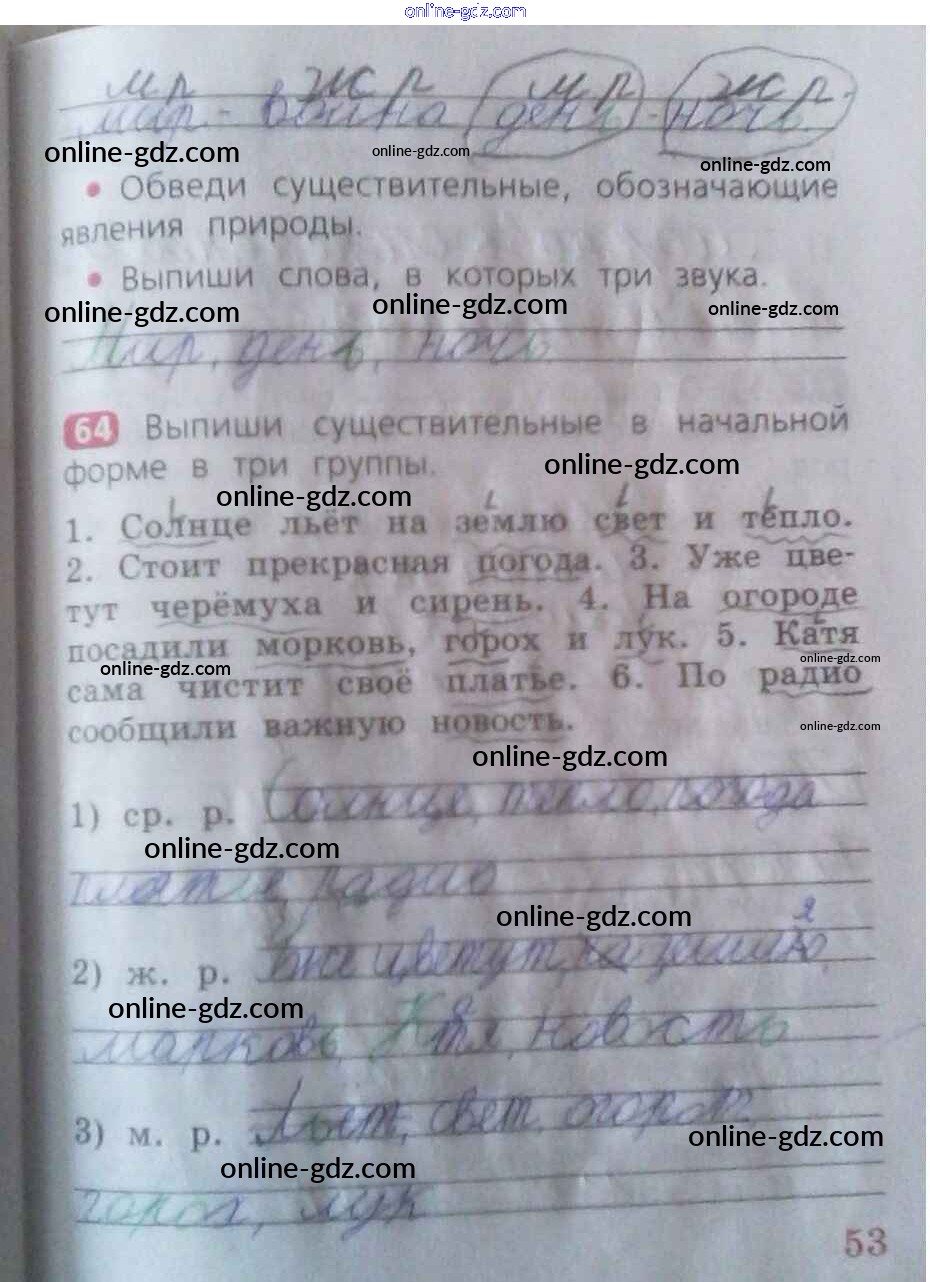 online-gdz.com
м р ж р м р ж р.
мир - война день - ночь
online-gdz.com online-gdz.com online-gdz.com
• Обведи существительные, обозначающие
явления природы.
• Выпиши слова, в которых три звука.
online-gdz.com online-gdz.com online-gdz.com
Мир, день, ночь
64 Выпиши существительные в начальной
форме в три группы.
online-gdz.com
online-gdz.com
1. Солнце льёт на землю свет и тепло.
2. Стоит прекрасная погода. 3. Уже цве-
тут черёмуха и сирень. 4. На огороде
посадили морковь, горох и лук. 5. Катя
online-gdz.com online-gdz.com
сама чистит своё платье. 6. По радио
сообщили важную новость.
online-gdz.com
online-gdz.com
1) ср. р. Солнце, тепло, погода
online-gdz.com
платье, радио
online-gdz.com
2) ж. р. Уже цветут, на землю я
online-gdz.com
марковь Катя, новость
3) м. р. Льёт, свет, огород
online-gdz.com
online-gdz.com
горох, лук
53